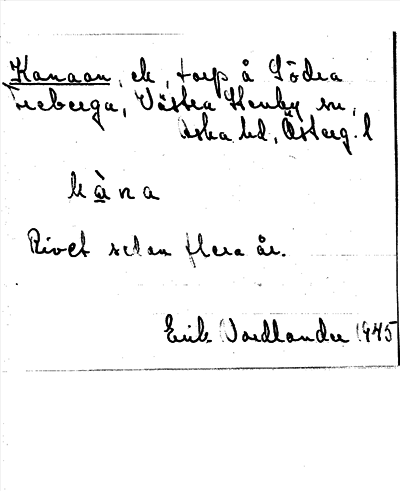 Kanaan, ek, torp å Södra
Freberga, Västra Stenby sn,
Aska hd, Österg. l
kàna
Rivet sedan flera år.
Erik Nordlander 1945